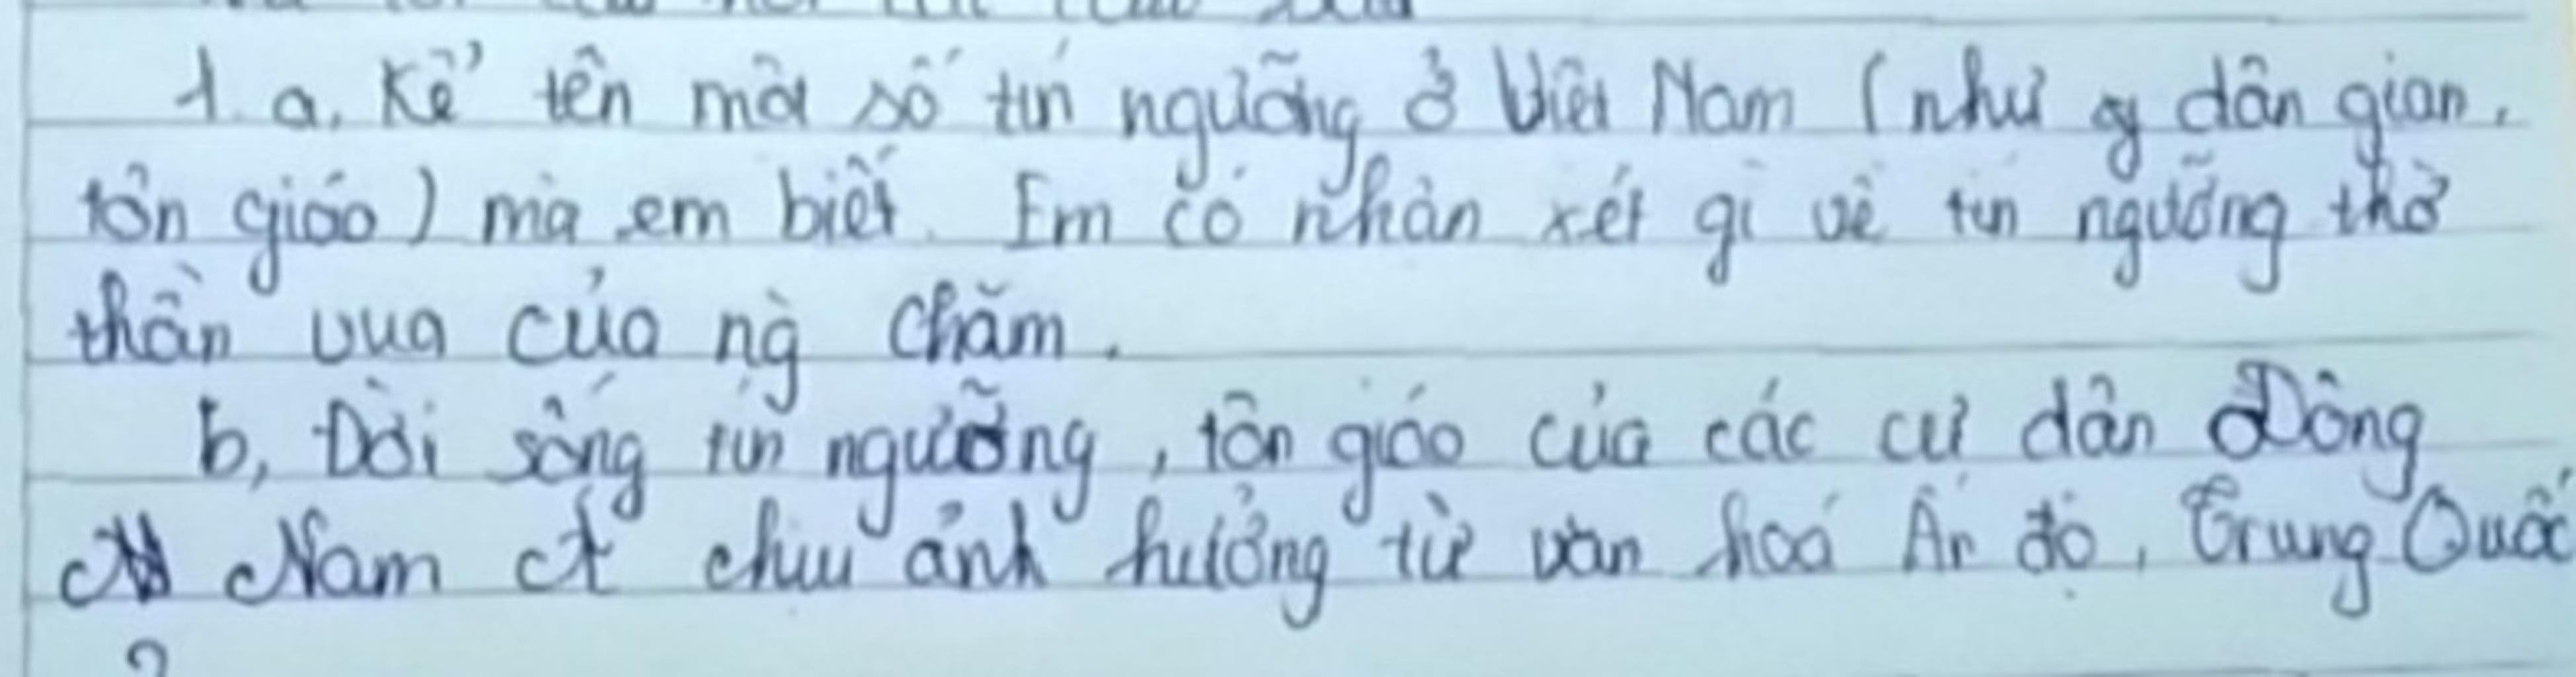 1. a, Kể tên một số tín ngưỡng ở Việt Nam (như dân gian,
tôn giáo) mà em biết. Em có nhận xét gì về tín ngưỡng thờ
thần vua của ng̀ Chăm.
b, Đời sống tín ngưỡng, tôn giáo của các cư dân Đông
Nam Á chịu ảnh hưởng từ văn hoá Ấn độ, Trung Quốc